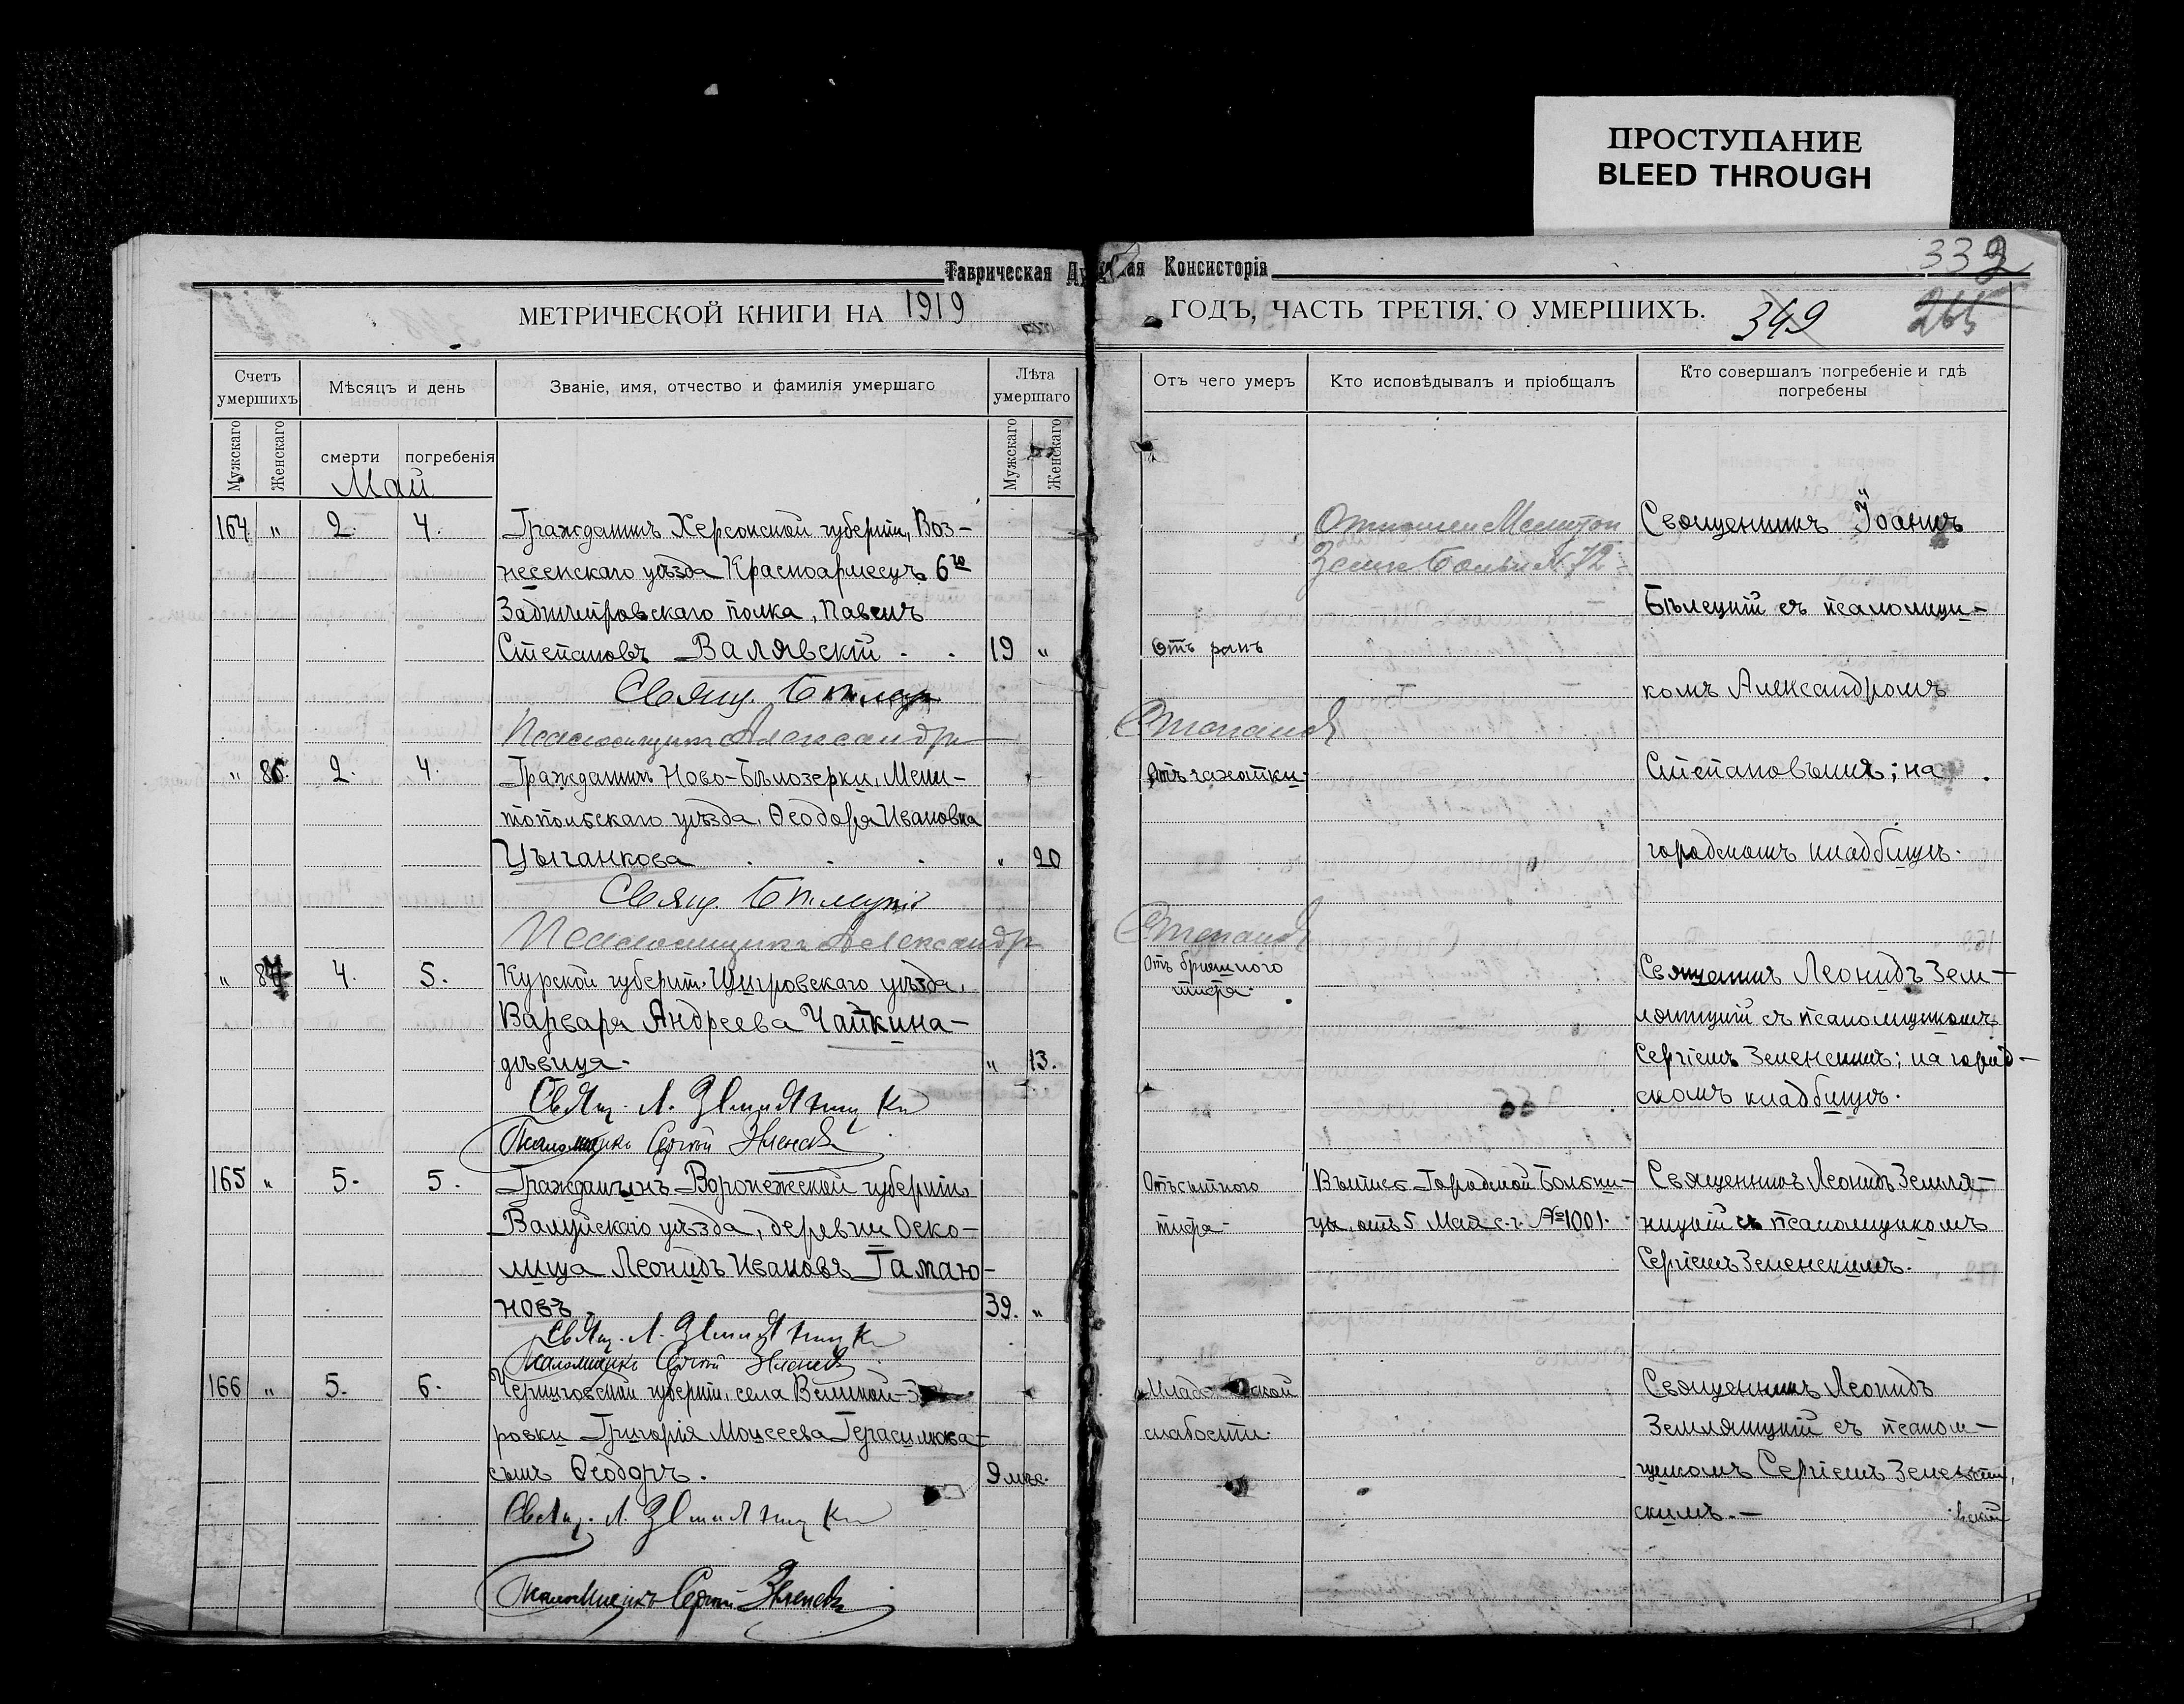 ПРОСТУПАНИЕ
BLEED THROUGH
Таврическая Ду ая Консисторія
332
МЕТРИЧЕСКОЙ КНИГИ НА 1919 ГОДЪ, ЧАСТЬ ТРЕТІЯ, О УМЕРШИХЪ.
349
265
Счетъ умершихъ
Мѣсяцъ и день
Званіе, имя, отчество и фамилія умершаго
Лѣта умершаго
Отъ чего умеръ
Кто исповѣдывалъ и пріобщалъ
Кто совершалъ погребеніе и гдѣ погребены
Мужскаго
Женскаго
смерти
погребенія
Мужскаго
Женскаго
Май
164 " 2. 4.
Гражданинъ Херсонской губерніи, Воз-
несенскаго уѣзда Красноармеецъ 6го
полка, Павелъ
Степановъ Валявскій . . 19 "
Свящ.
Псаломщикъ Александръ Степановъ
Отъ ранъ
№ 72
Священникъ Іоаннъ
Бѣлецкій съ псаломщи-
комъ Александромъ
Степановымъ; на
городскомъ кладбищѣ.
" 86. 2. 4.
Гражданинъ Ново-Бѣлозерки, Мели-
топольскаго уѣзда, Ѳеодора Ивановна
Цыганкова . . . " 20
Свящ. Бѣлецкій
Псаломщикъ Александръ Степановъ
Отъ чахотки.
" 87 4. 5.
Курской губерніи, Щигровскаго уѣзда,
Варвара Андреева Чапкина-
дѣвица. " 13.
Свящ. Л. Землятницкій
Псаломщикъ Сергій
Отъ брюшного
тифа.
Священникъ Леонидъ Зем-
съ псаломщикомъ
Сергіемъ Зеленскимъ; на город-
скомъ кладбищѣ.
165 " 5. 5.
Гражданинъ Воронежской губерніи,
Валуйскаго уѣзда, деревни Оско-
лища Леонидъ Ивановъ Гамаю-
новъ 39. "
Свящ. Л.
Псаломщикъ Сергій
Отъ сыпного
тифа-
Выпись Городской Больни-
цы, отъ 5 Мая с.г. №1001.
Священникъ Леонидъ Земля-
ницкій съ псаломщикомъ
Сергіемъ Зеленскимъ.
166 " 5. 6.
Черниговской губерніи, села Великой-
ровки Григорія Моисеева Герасимова-
сынъ Ѳеодоръ. 9 мѣс.
Свящ. Л.
Псаломщикъ Сергій
слабости.
Священникъ Леонидъ
съ псалом-
щикомъ Сергіемъ
скимъ.-